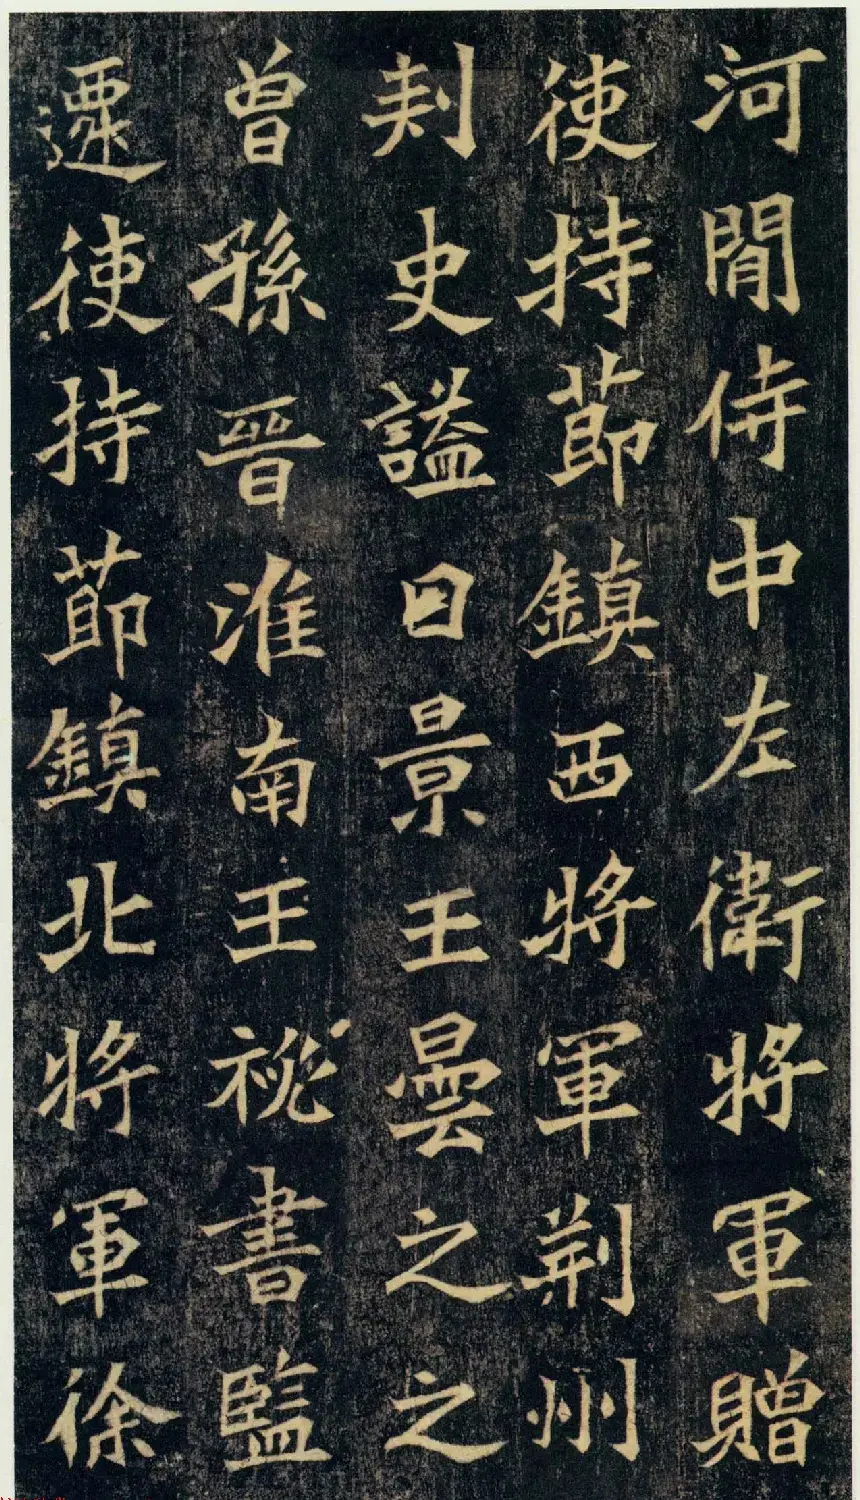 河閒侍中左衛將軍贈
使持節鎮西將軍荊州
刺史謚曰景王曇之之
曾孫晉淮南王祕書監
遷使持節鎮北將軍徐